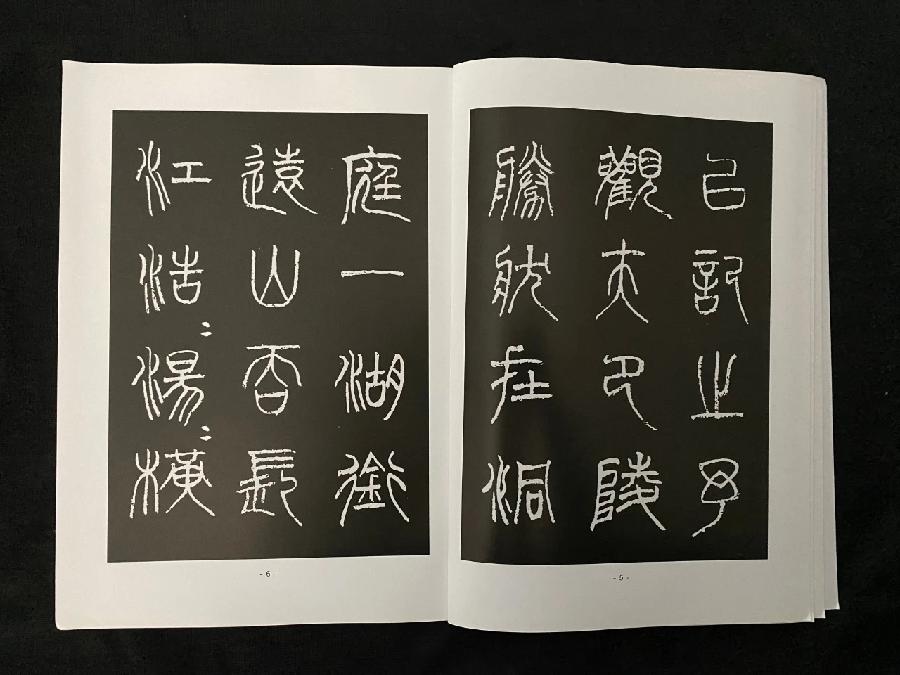 以記之予
觀夫巴陵
勝狀在洞
- 5 -
庭一湖銜
遠山吞長
江浩〻湯〻橫
- 6 -